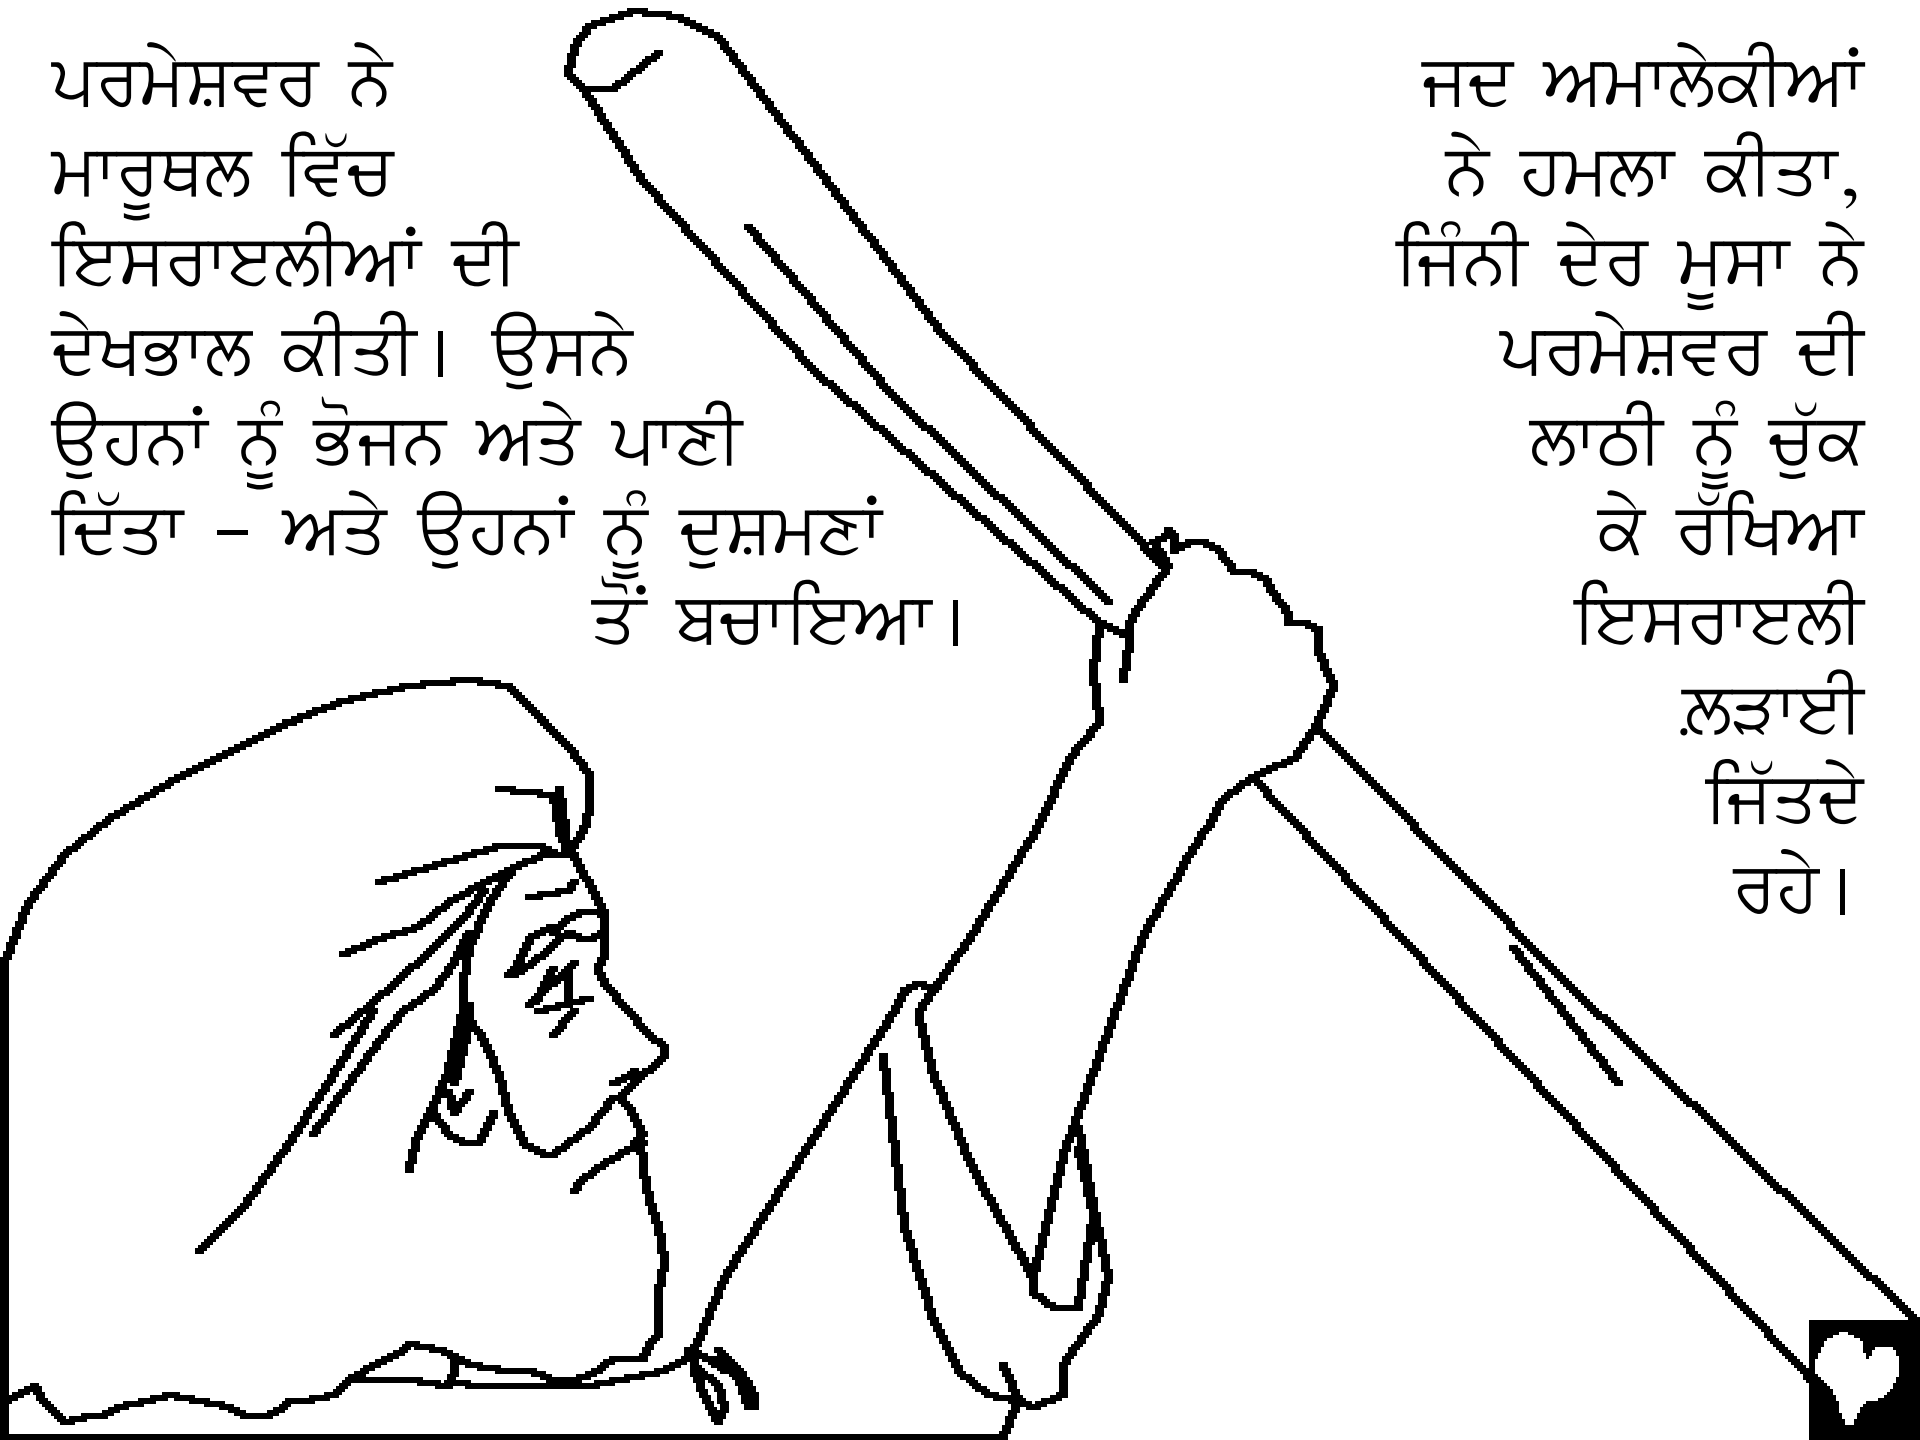 ਪਰਮੇਸ਼ਵਰ ਨੇ
ਮਾਰੂਥਲ ਵਿੱਚ
ਇਸਰਾਏਲੀਆਂ ਦੀ
ਦੇਖਭਾਲ ਕੀਤੀ। ਉਸਨੇ
ਉਹਨਾਂ ਨੂੰ ਭੋਜਨ ਅਤੇ ਪਾਣੀ
ਦਿੱਤਾ – ਅਤੇ ਉਹਨਾਂ ਨੂੰ ਦੁਸ਼ਮਣਾਂ
ਤੋਂ ਬਚਾਇਆ।
ਜਦ ਅਮਾਲੇਕੀਆਂ
ਨੇ ਹਮਲਾ ਕੀਤਾ,
ਜਿੰਨੀ ਦੇਰ ਮੂਸਾ ਨੇ
ਪਰਮੇਸ਼ਵਰ ਦੀ
ਲਾਠੀ ਨੂੰ ਚੁੱਕ
ਕੇ ਰੱਖਿਆ
ਇਸਰਾਏਲੀ
ਲ਼ੜਾਈ
ਜਿੱਤਦੇ
ਰਹੇ।